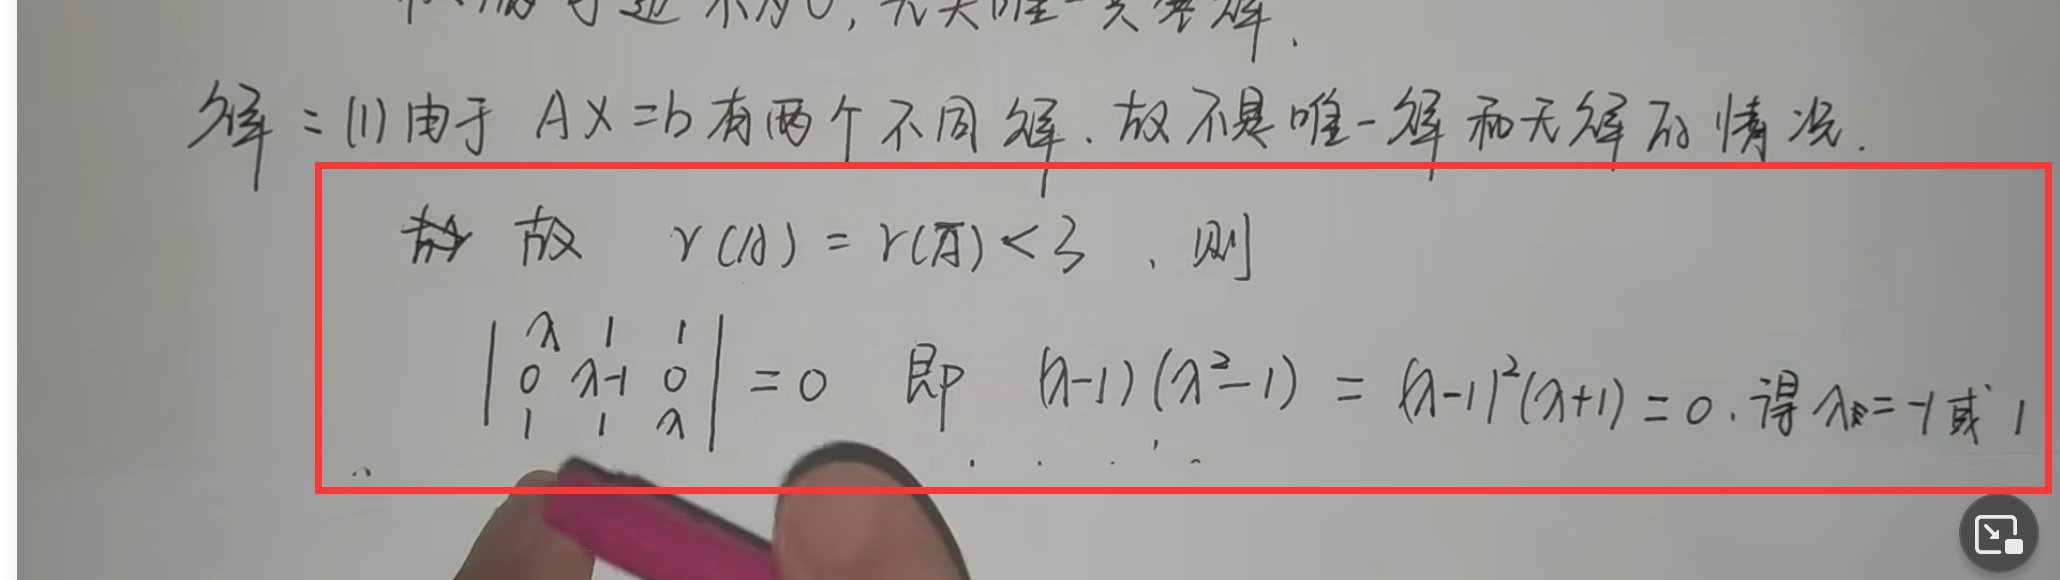 不为0,
解:(1)由于 AX=b有两个不同解.故不是唯一解和无解的情况.
故 r(A) = r(Ā) < 3 , 则
| λ 1 1 |
| 0 λ-1 0 | = 0 即 (λ-1)(λ²-1) = (λ-1)²(λ+1) = 0. 得 λ = -1或 1
| 1 1 λ |